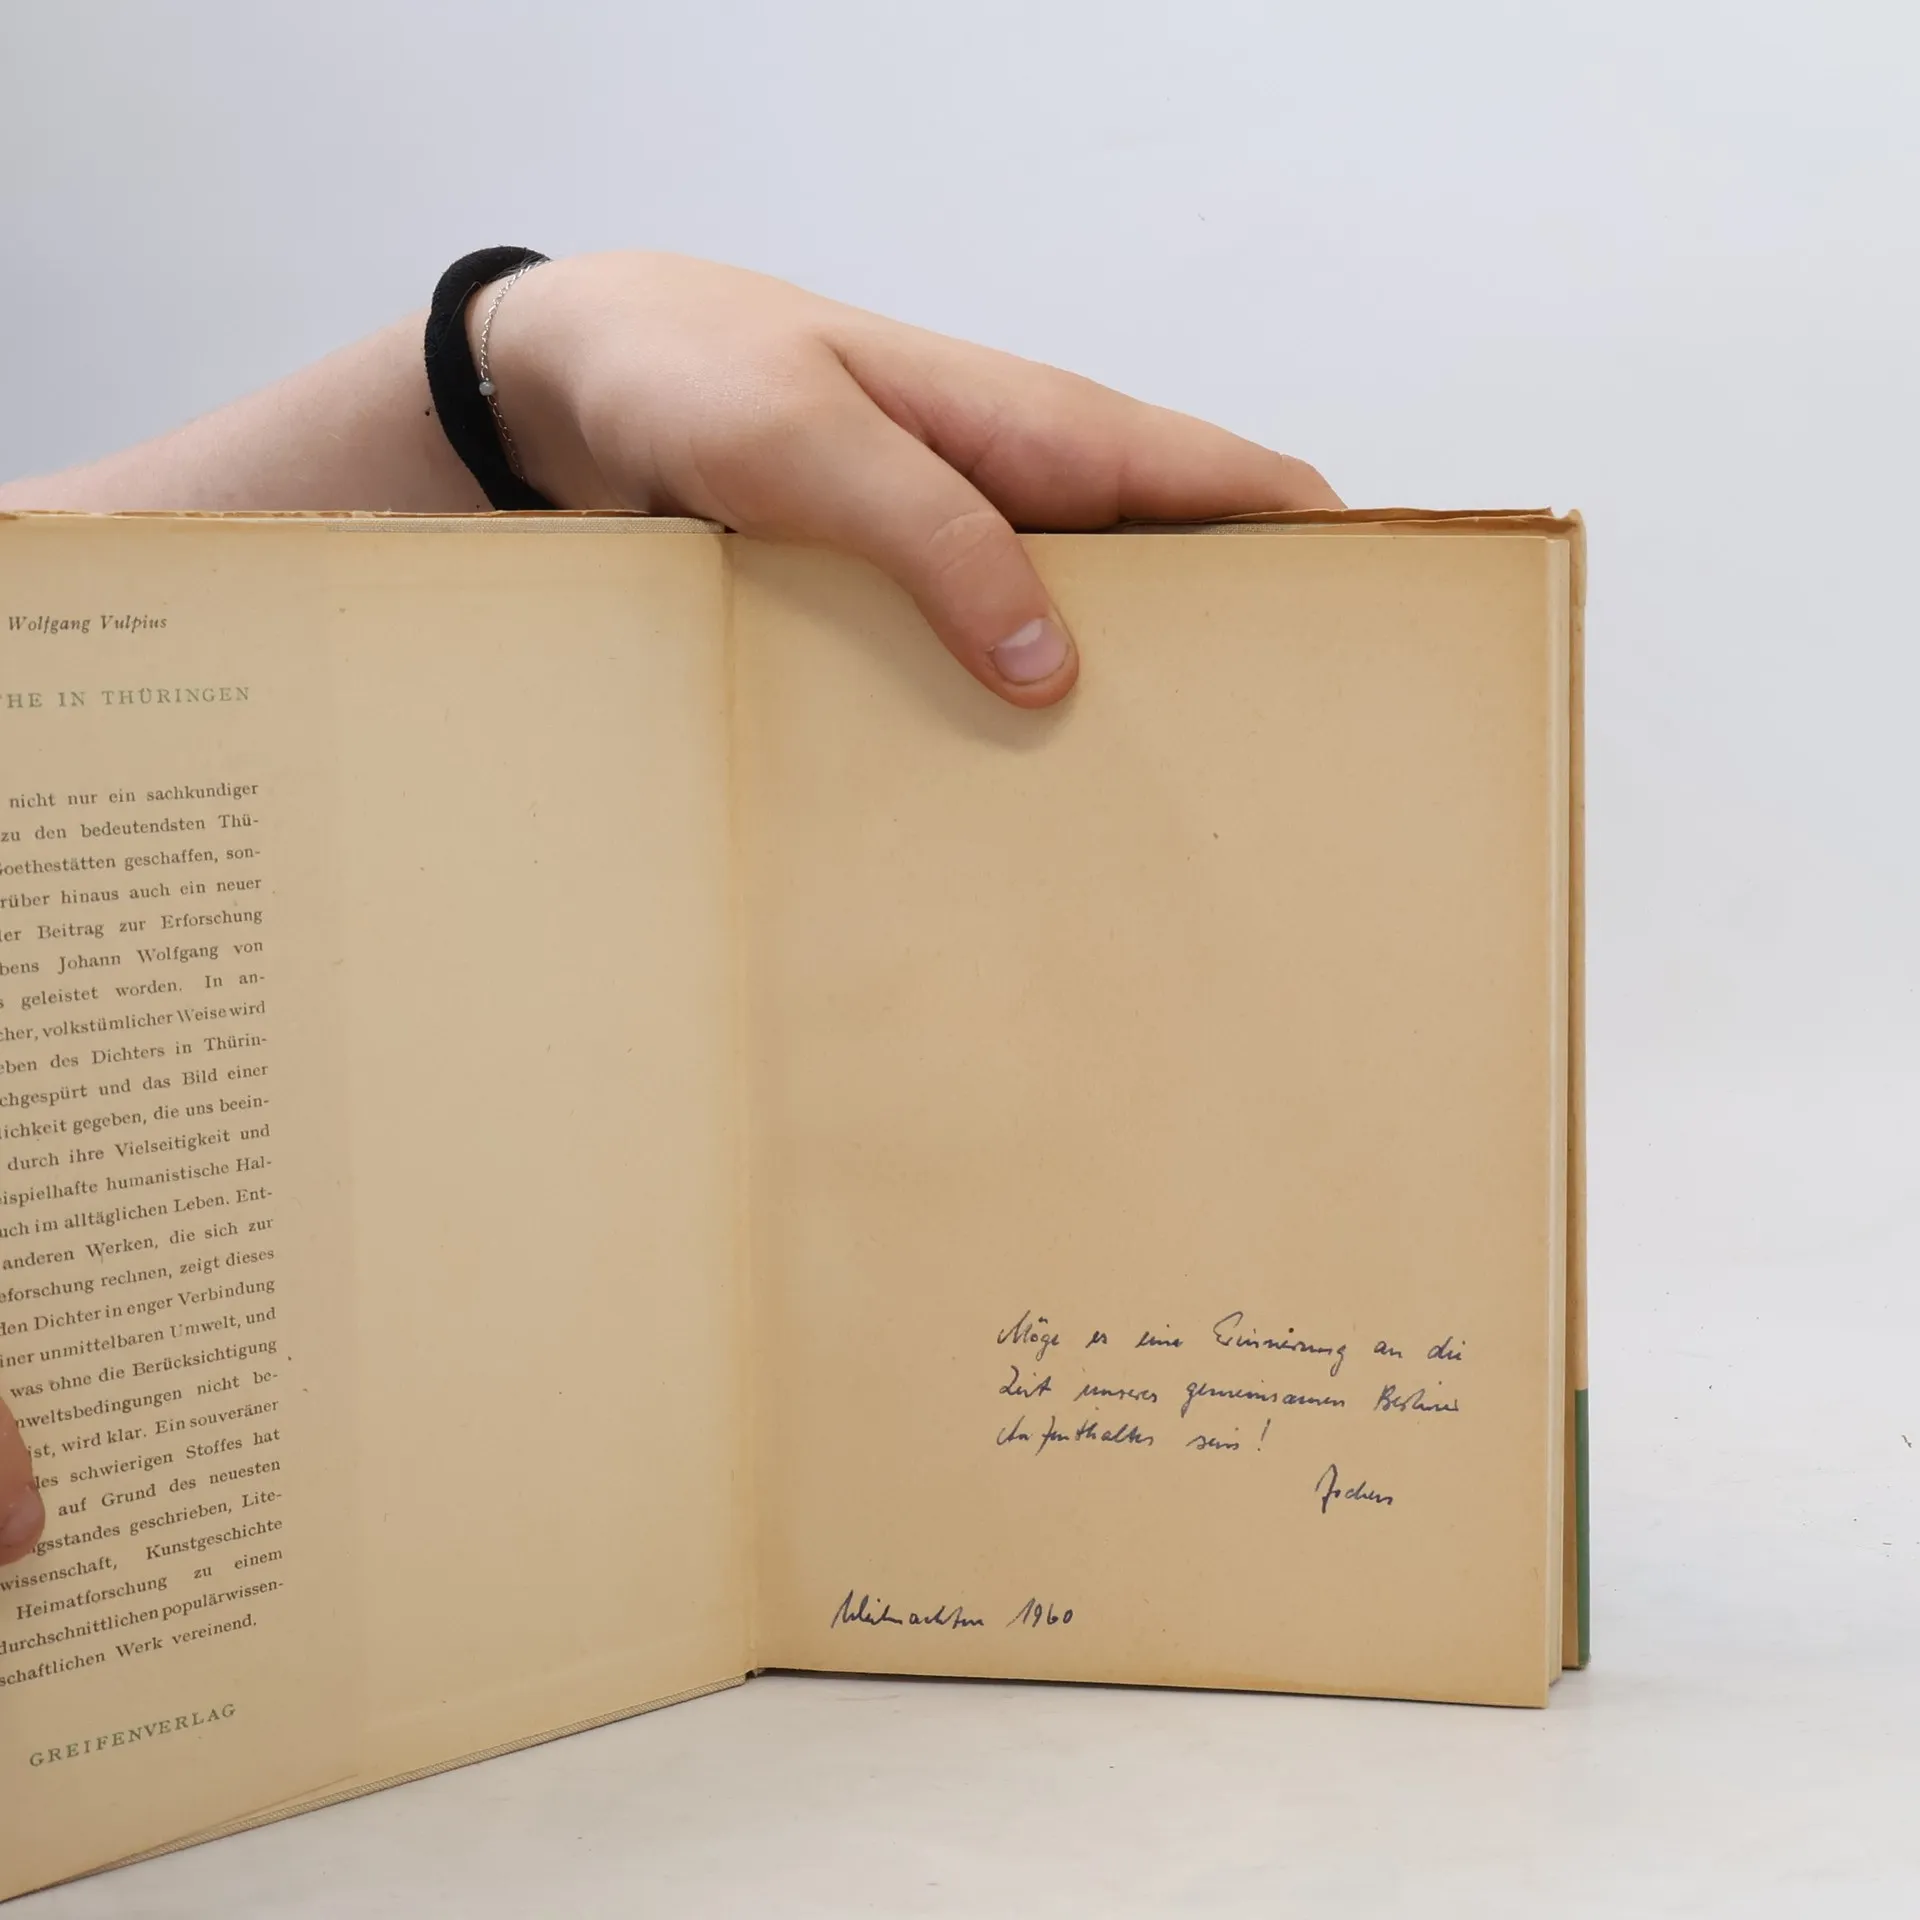 Wolfgang Vulpius
THE IN THÜRINGEN
nicht nur ein sachkundiger
zu den bedeutendsten Thü-
Goethestätten geschaffen, son-
rüber hinaus auch ein neuer
ler Beitrag zur Erforschung
bens Johann Wolfgang von
s geleistet worden. In an-
cher, volkstümlicher Weise wird
eben des Dichters in Thürin-
chgespürt und das Bild einer
lichkeit gegeben, die uns beein-
durch ihre Vielseitigkeit und
ispielhafte humanistische Hal-
uch im alltäglichen Leben. Ent-
anderen Werken, die sich zur
eforschung rechnen, zeigt dieses
den Dichter in enger Verbindung
iner unmittelbaren Umwelt, und
was ohne die Berücksichtigung
nweltsbedingungen nicht be-
ist, wird klar. Ein souveräner
des schwierigen Stoffes hat
auf Grund des neuesten
gsstandes geschrieben, Lite-
wissenschaft, Kunstgeschichte
Heimatforschung zu einem
durchschnittlichen populärwissen-
schaftlichen Werk vereinend.
GREIFENVERLAG
Möge es eine Erinnerung an die
Zeit unseres gemeinsamen Berliner
Aufenthaltes sein!
Jochen
Weihnachten 1960